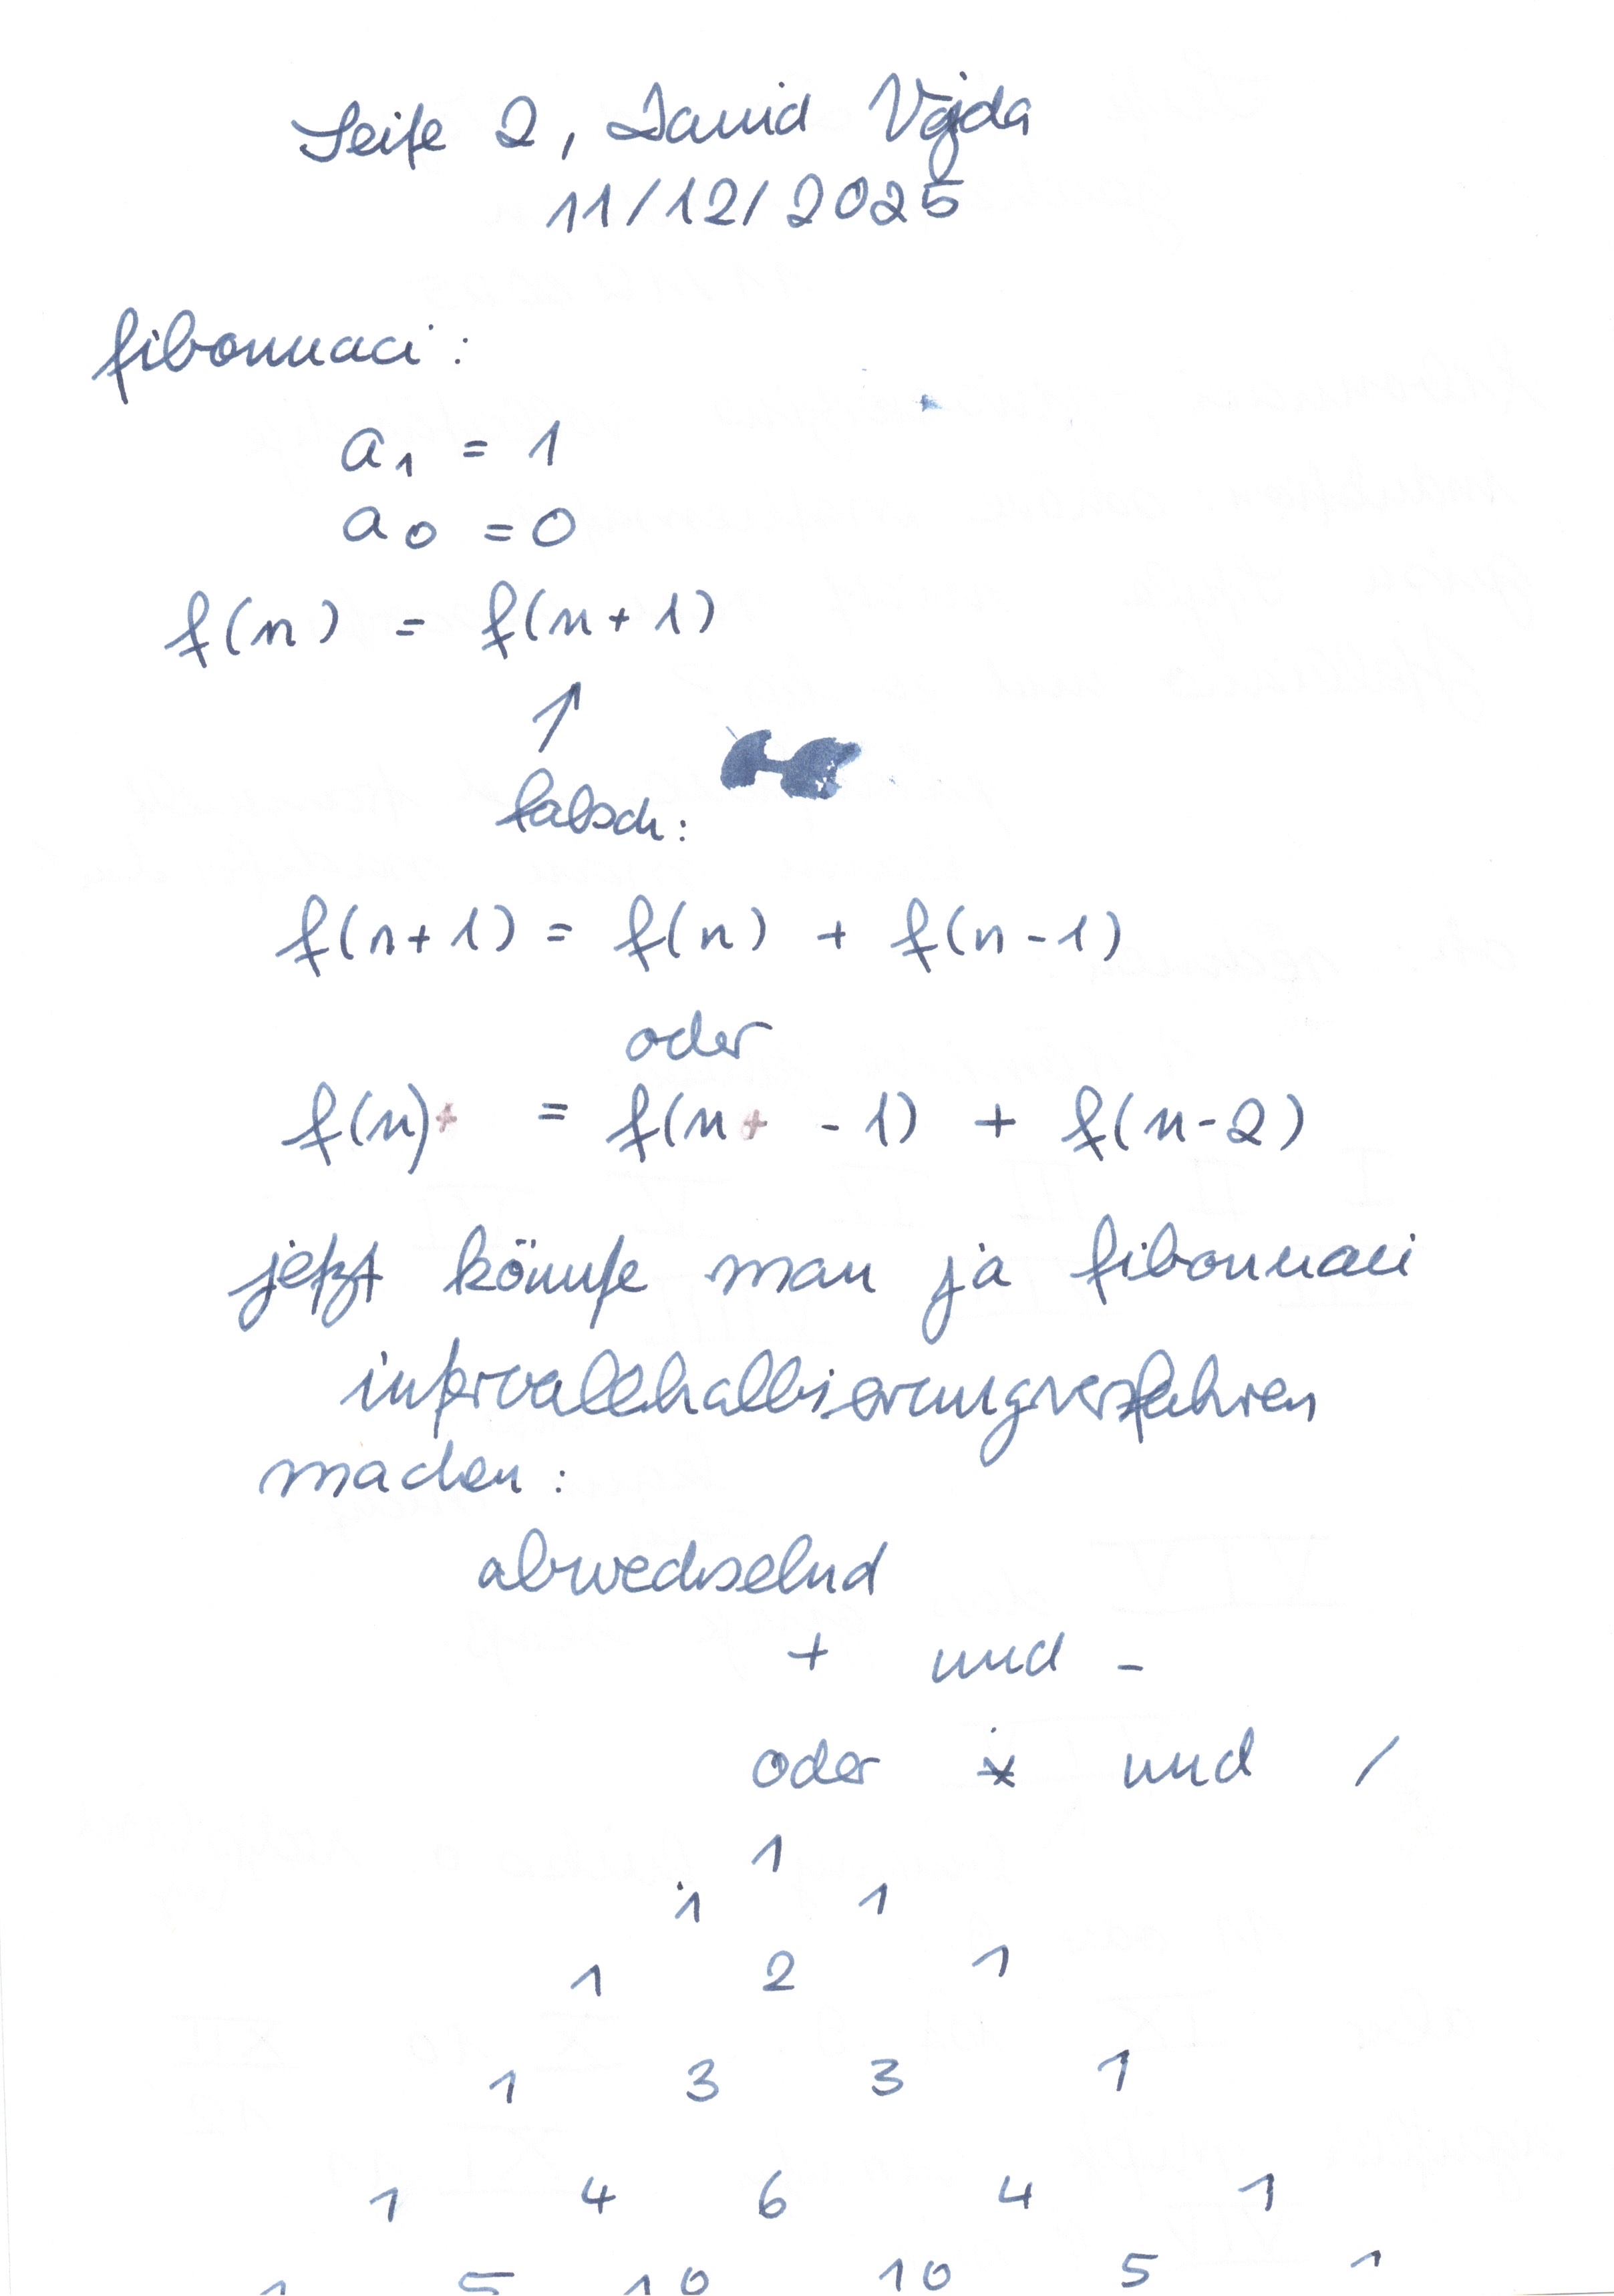 Seite 2, David Vajda
11/12/2025
fibonnaci:
a₁ = 1
a₀ = 0
f(n) = f(n+1)
↑
falsch:
f(n+1) = f(n) + f(n-1)
oder
f(n) = f(n - 1) + f(n-2)
jetzt könnte man ja fibonnaci
intervallhalbierungsverfahren
machen:
abwechselnd
+ und -
oder * und /
1
1 1
1 2 1
1 3 3 1
1 4 6 4 1
1 5 10 10 5 1